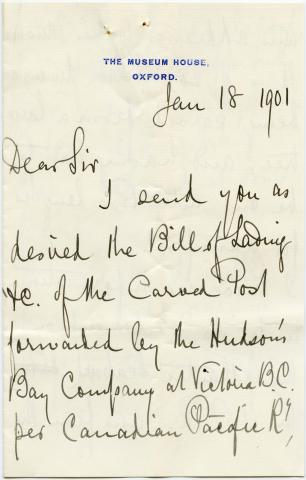 THE MUSEUM HOUSE,
OXFORD.
Jan 18 1901
Dear Sir
I send you as
desired the Bill of Lading
&c. of the Carved Post
forwarded by the Hudson's
Bay Company at Victoria B.C.
per Canadian Pacific Ry,